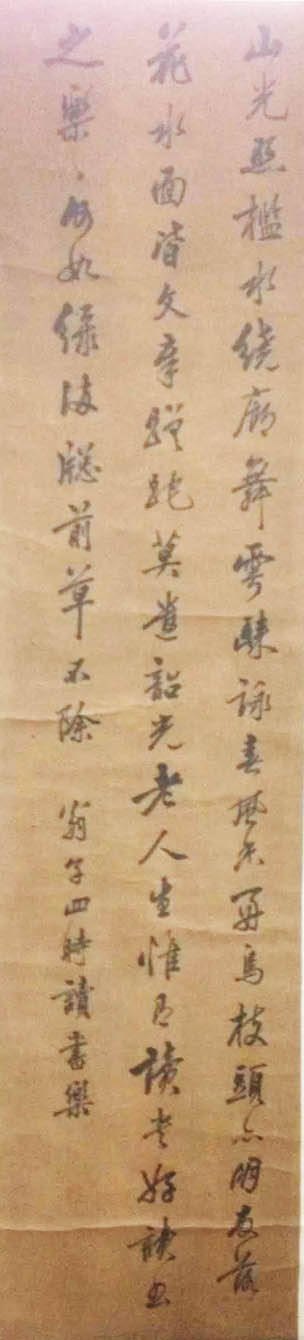 山光照檻水繞廊舞雩歸詠春風香好鳥枝頭亦朋友落
花水面皆文章蹉跎莫遣韶光老人生惟有讀書好讀書
之樂々何如綠滿牕前草不除 翁子四時讀書樂